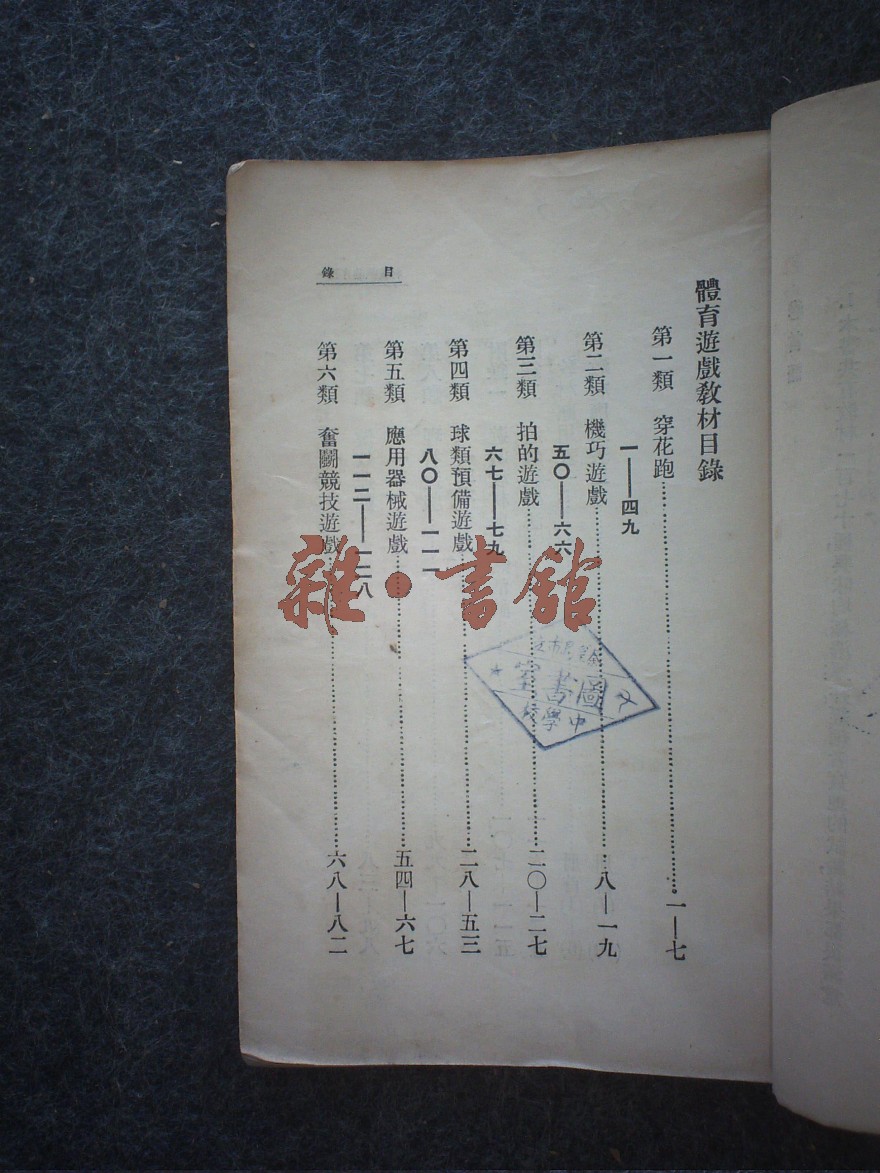 體育遊戲教材目錄
第一類 穿花跑……一—七
一——四九
第二類 機巧遊戲……八—一九
五〇——六六
第三類 拍的遊戲……二〇—二七
六七——七九
第四類 球類預備遊戲……二八—五三
八〇——一一一
第五類 應用器械遊戲……五四—六七
一一二——一二八
第六類 奮鬭競技遊戲……六八—八二
目錄
雜·書館
圖書室
中學校